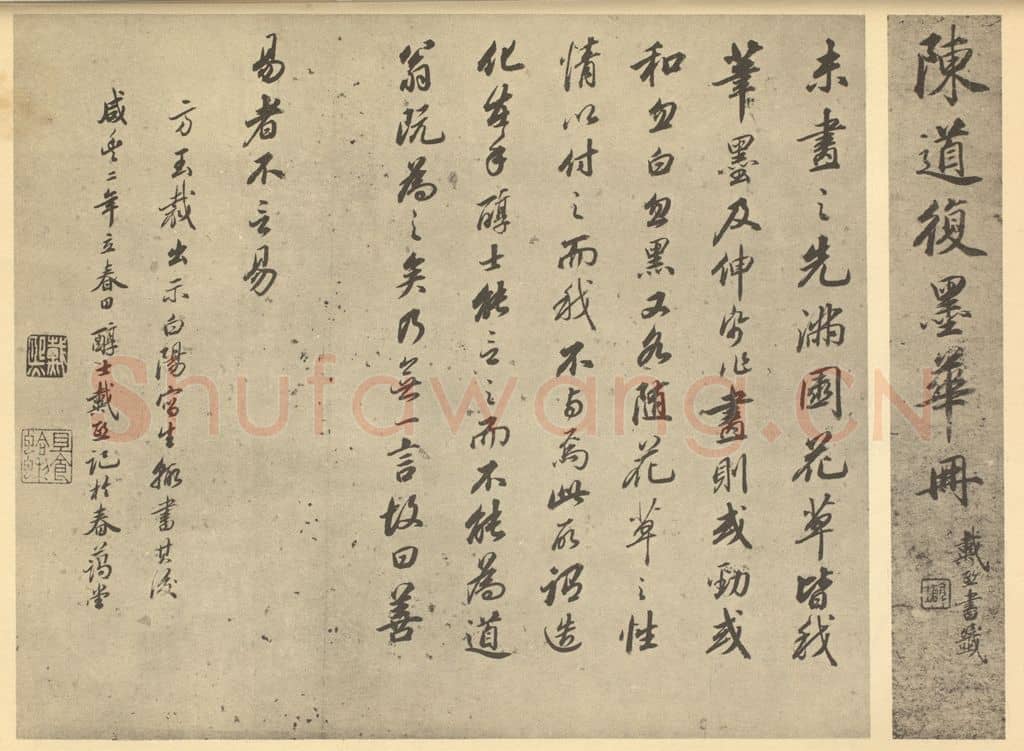 陳道復墨華冊
戴熙書籤
未畫之先滿園花草皆我
筆墨及伸帋作畫則或勁或
和忽白忽黑又各隨花草之性
情以付之而我不与焉此所謂造
化在手醇士能言之而不能為道
翁既為之矣乃無一言故曰善
易者不言易
方玉裁出示白陽寫生輙書其後
咸豐二年立春日醇士戴熙記於春藹堂
戴熙
Shufawang.CN